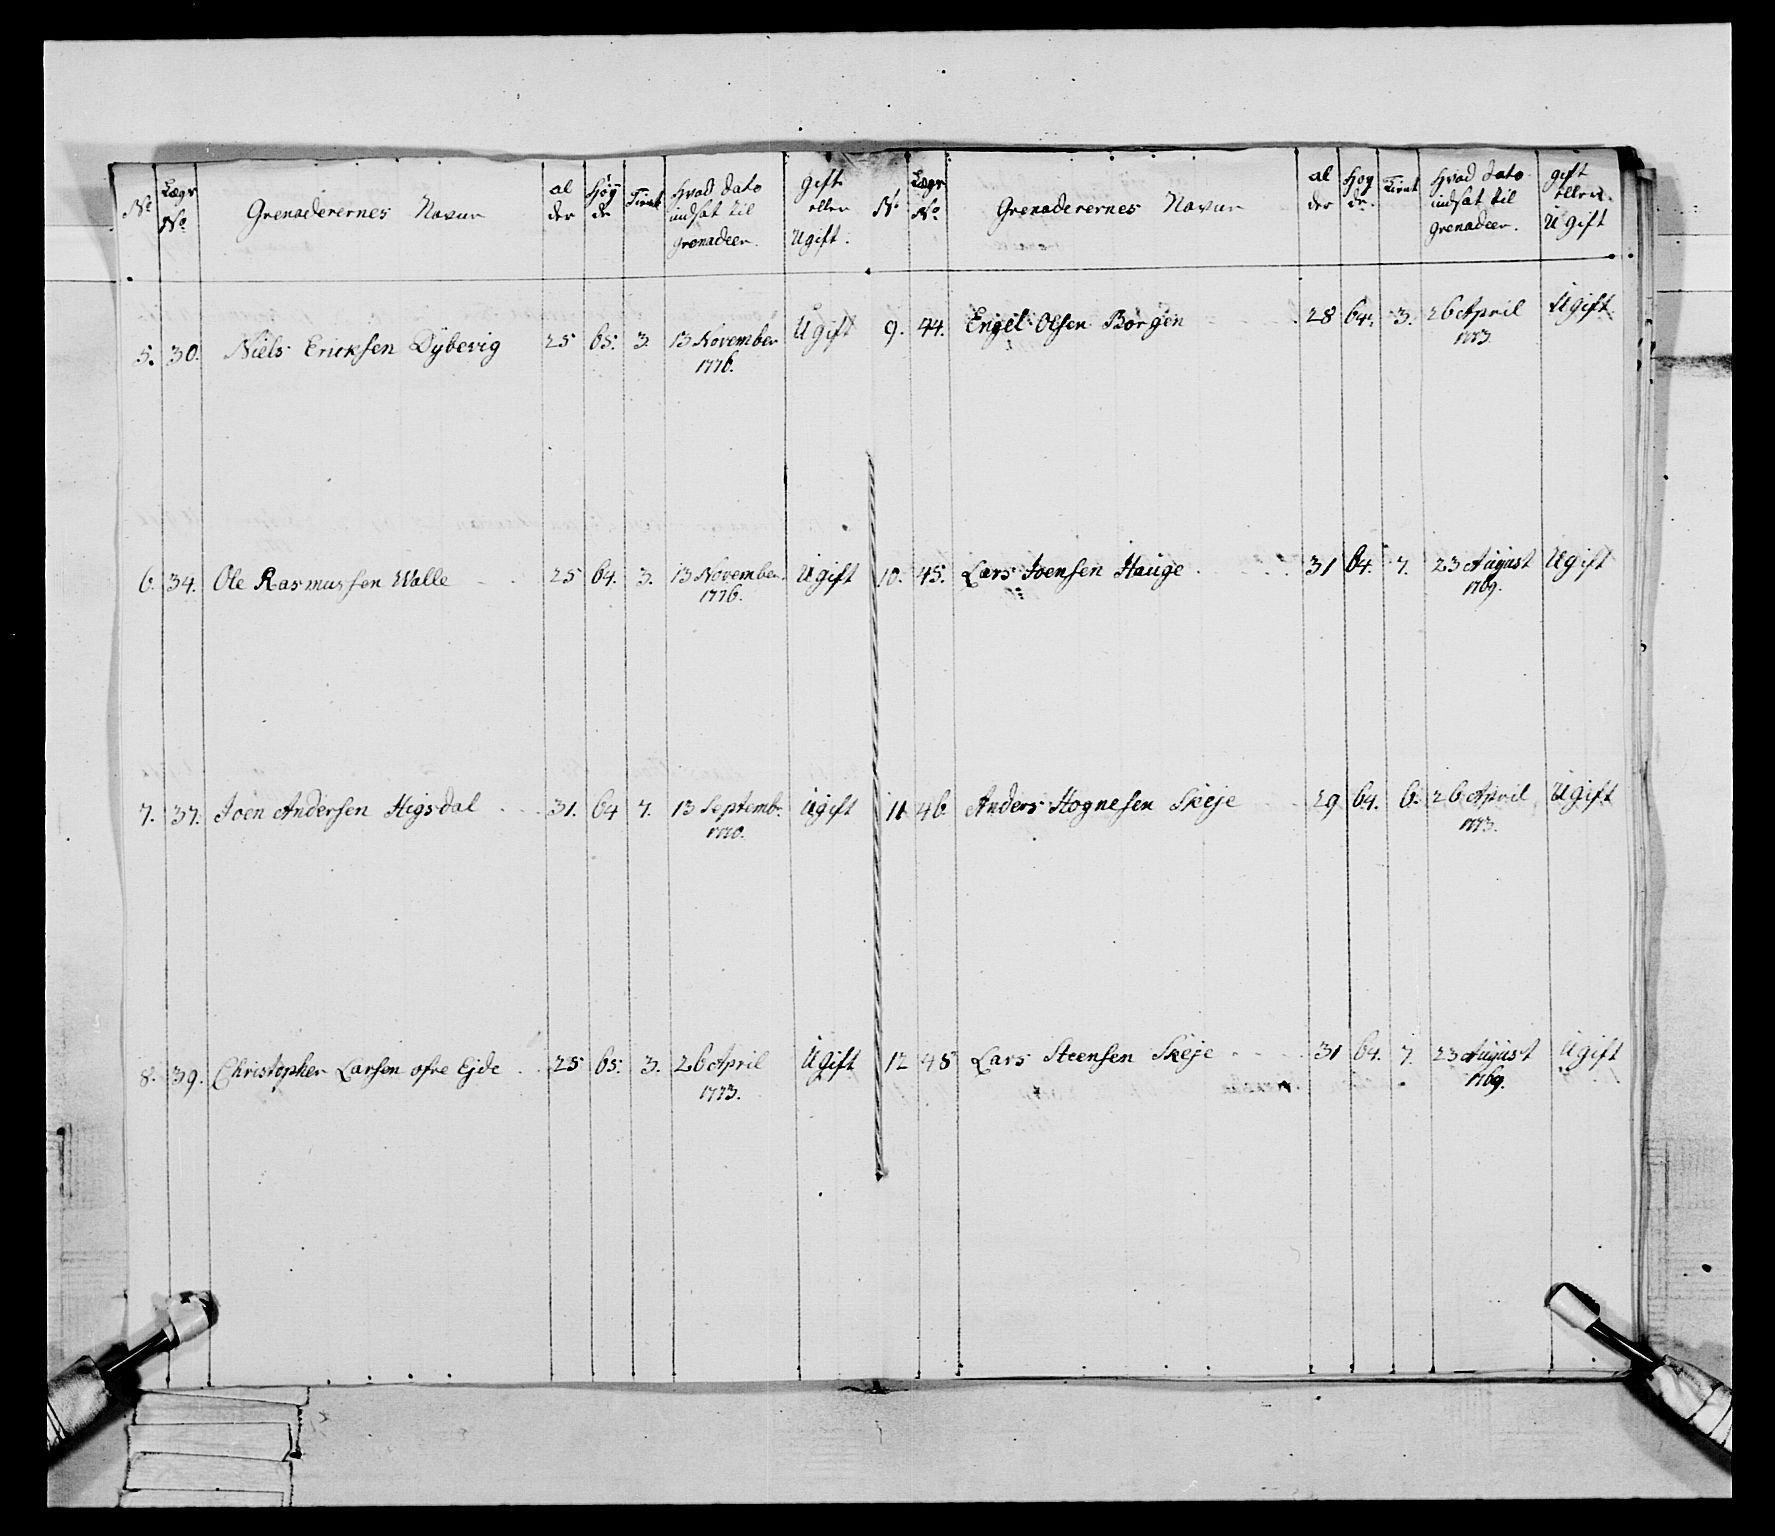 No Lægs No Grenaderernes Navne al der Høy de Tient Hvad dato indsat til Grenadeer. gift eller Ugift.
5. 30. Niels Ericksen Dybevig 25 65. 3. 13 November 1776. Ugift
6. 34. Ole Rasmussen Walle 25 64. 3. 13 November 1776. Ugift
7. 37. Joen Andersen Higsdal 31. 64 7. 13 Septembr. 1770. Ugift
8. 39. Christopher Larsen øfre Ejde 25 65. 3. 26 April 1773. Ugift
No Lægs No Grenaderernes Navne al der Høy de Tient Hvad dato indsat til Grenadeer. gift eller Ugift
9. 44. Engel Olsen Børgen 28 64. 3. 26 April 1773. Ugift
10. 45. Lars Joensen Hauge 31 64. 7. 23 August 1769. Ugift
11 46 Anders Hognesen Skeje 29 64. 6. 26 April 1773. Ugift
12 48 Lars Steensen Skeje 31 64. 7. 23 August 1769. Ugift